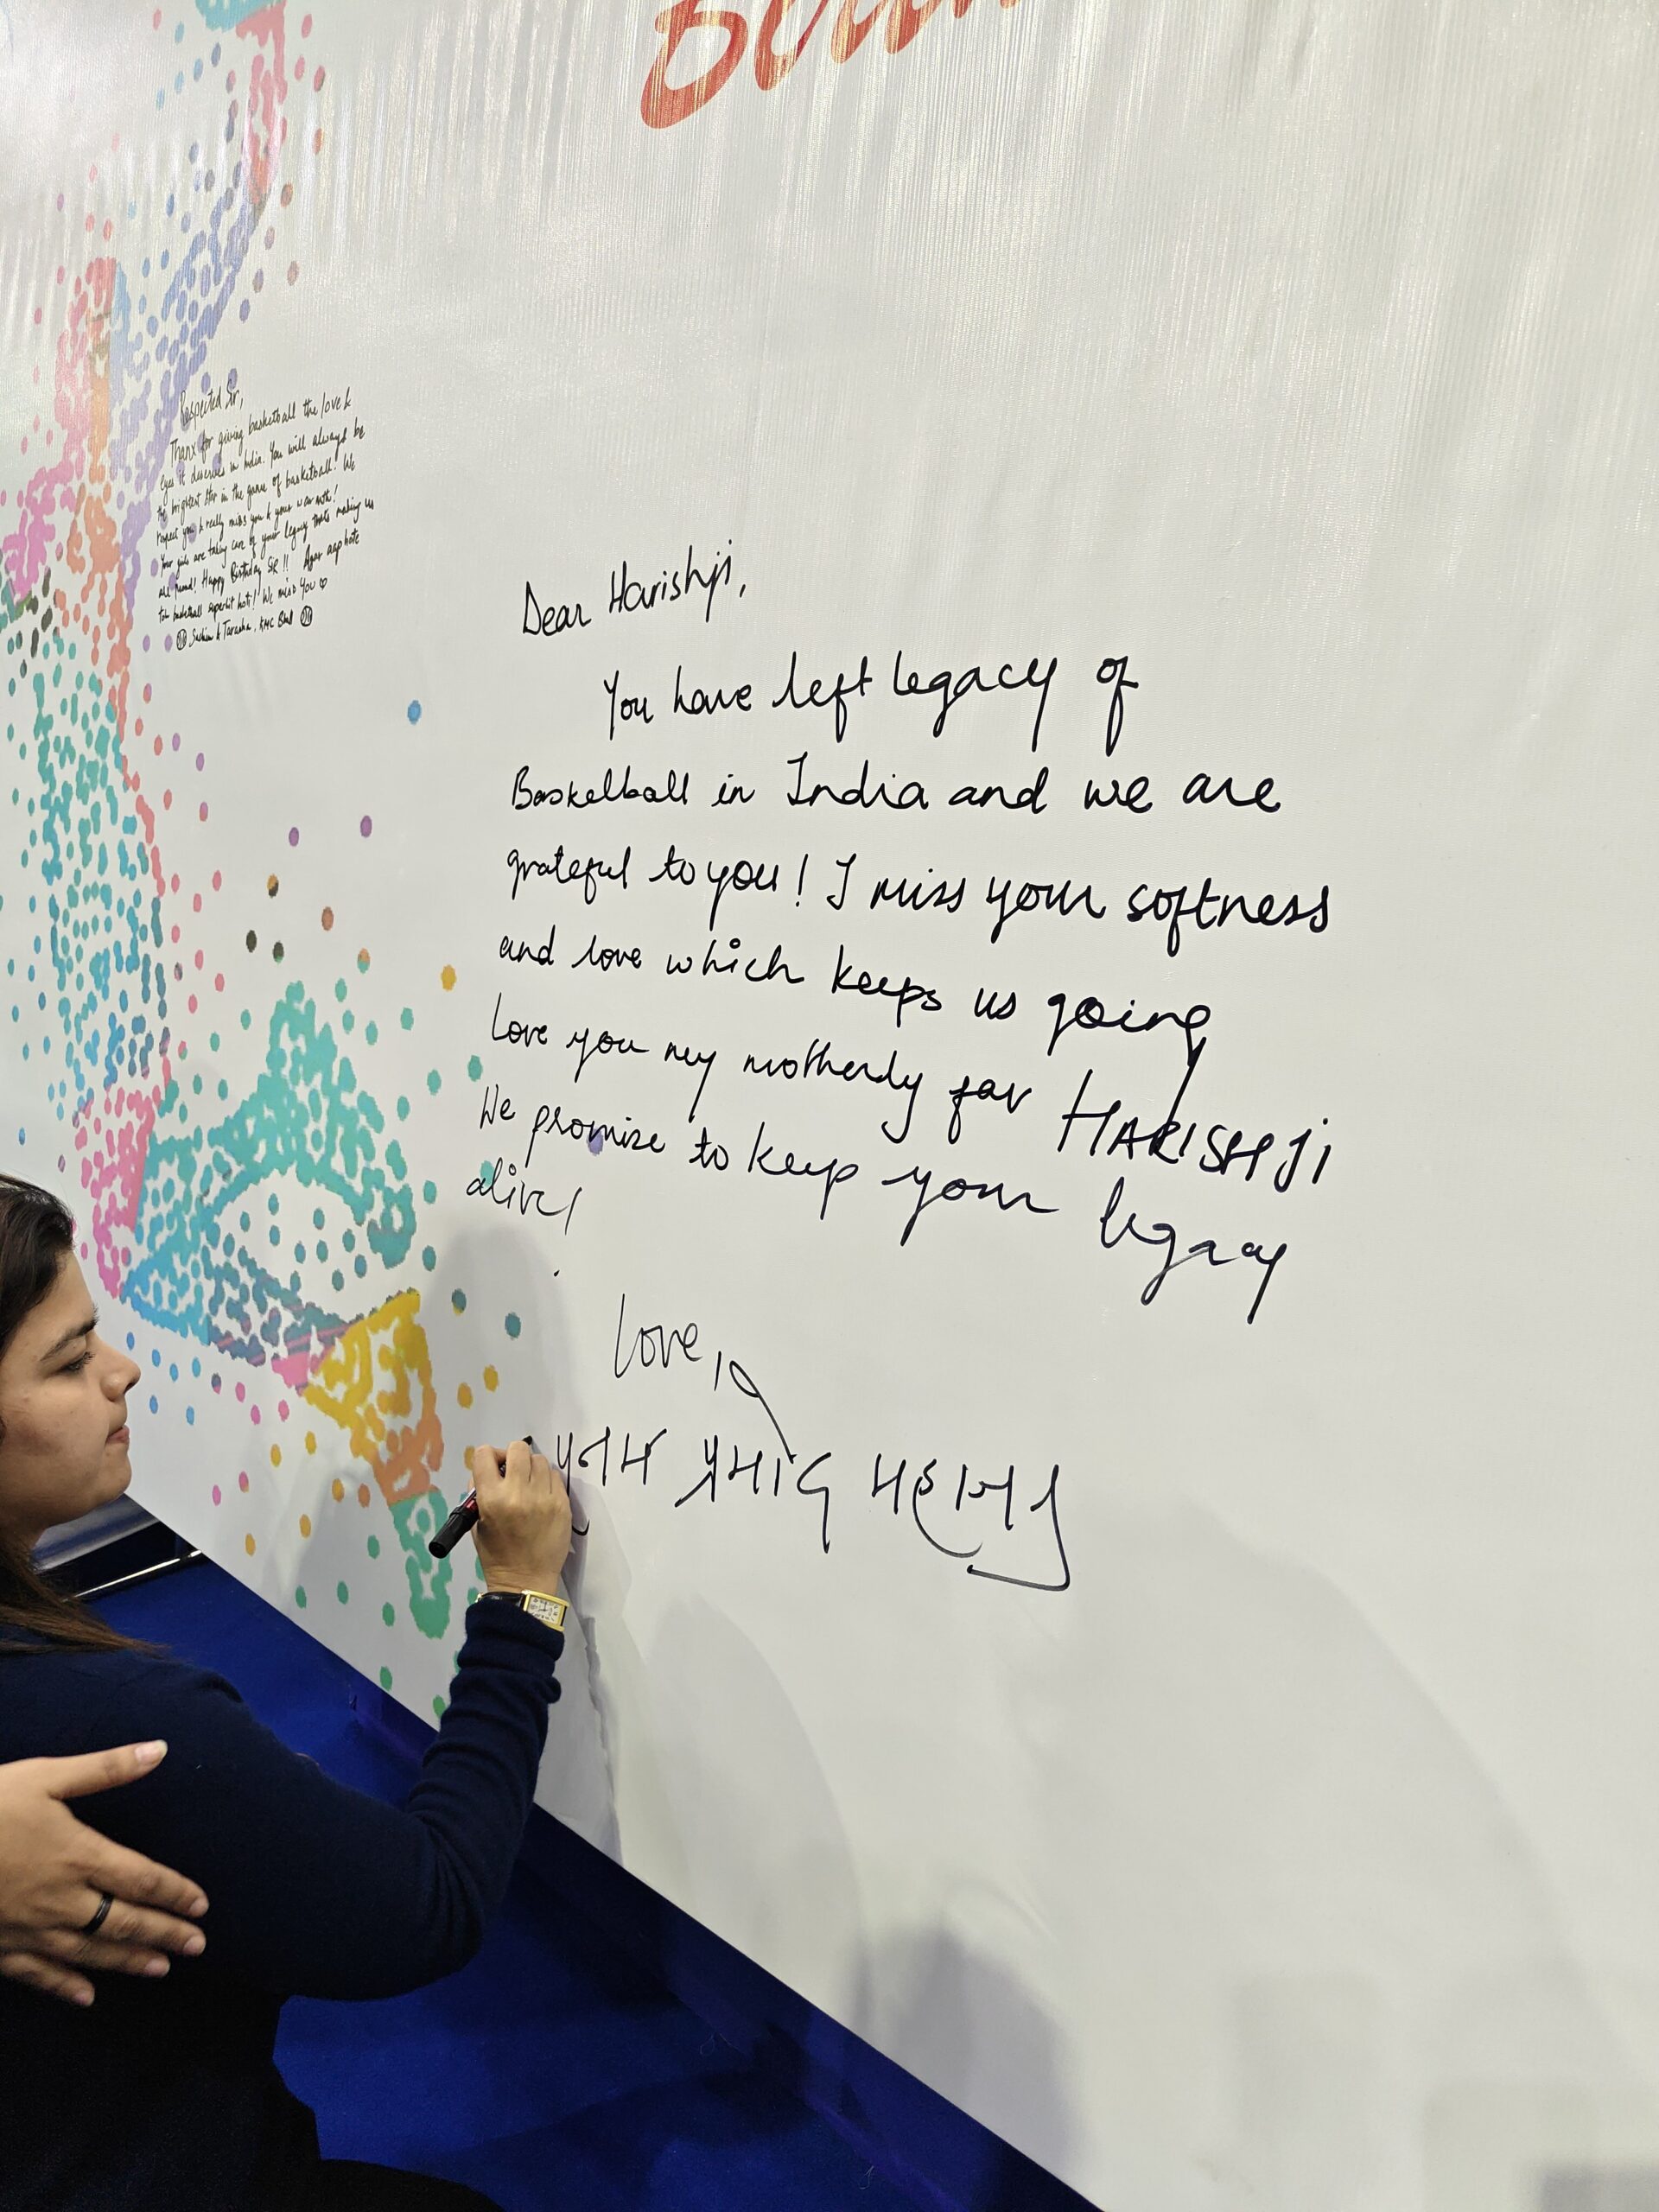 Respected Sir,
Thanx for giving basketball the love &
eyes it deserves in India. You will always be
the brightest star in the game of basketball! We
respect you & really miss you & your warmth!
Your girls are taking care of your legacy thats making us
all proud! Happy Birthday SIR!! Agar aap hote
toh basketball superhit hoti! We miss YOU
Dear Harishji,
You have left legacy of
Basketball in India and we are
grateful to you! I miss your softness
and love which keeps us going
Love you my motherly far HARISHJI
We promise to keep your legacy
alive!
Love,